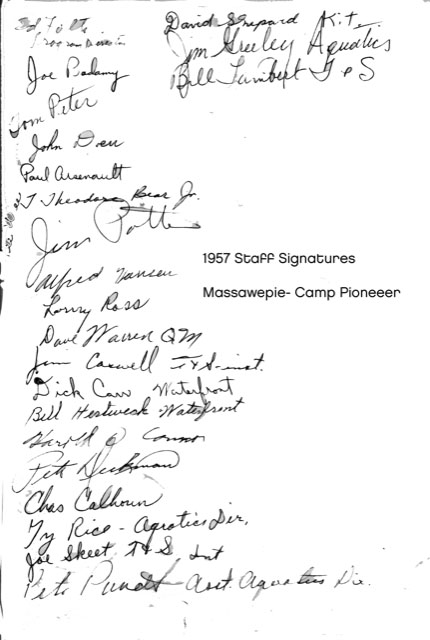 Program Director
Joe Badamy
Tom Peter
John Doeu
Paul Arsenault
J. Theodore Bear Jr.
Jim Potter
Alfred Hansen
Larry Ross
Dave Warren QM
Jim Caswell T&S-inst.
Dick Carr Waterfront
Bill Hestwesk Waterfront
Harold Connor
Pete Dickman
Chas Calhoun
Ty Rice - Aquatics Dir.
Joe Skeet, T&S Inst
Pete Pundt Asst. Aquatics Dir.
David Shepard K.t.
Jim Greeley Aquatics
Bill Lumbert T & S
1957 Staff Signatures
Massawepie- Camp Pioneeer